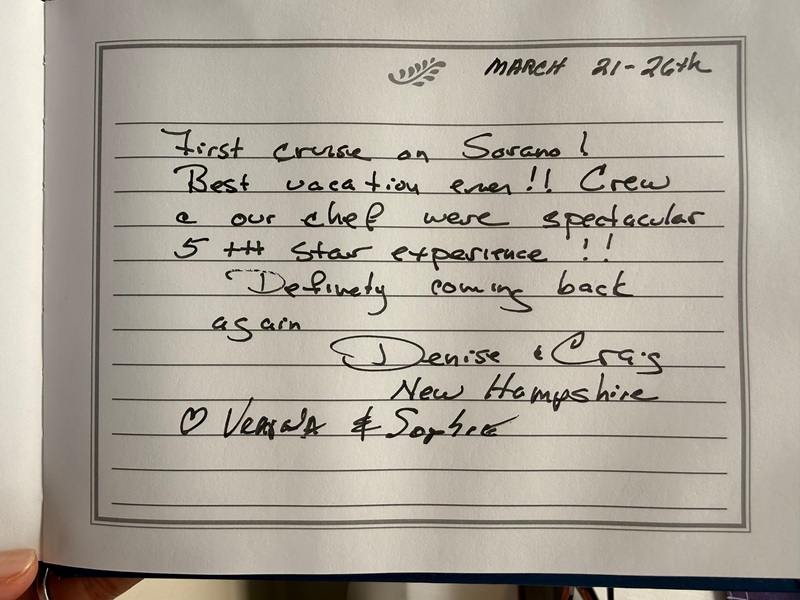 MARCH 21-26th
First cruise on Sorano!
Best vacation ever!! Crew
& our chef were spectacular
5 +++ star experience !!
Definety coming back
again
Denise & Craig
New Hampshire
♡ & Sophie